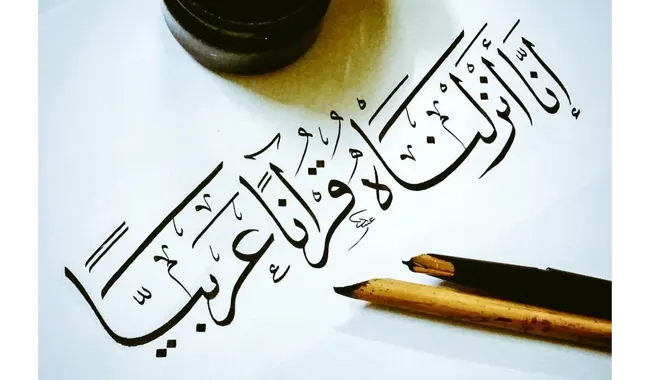 إنَّا أَنزَلْنَاهُ قُرْآنًا عَرَبِيًّا